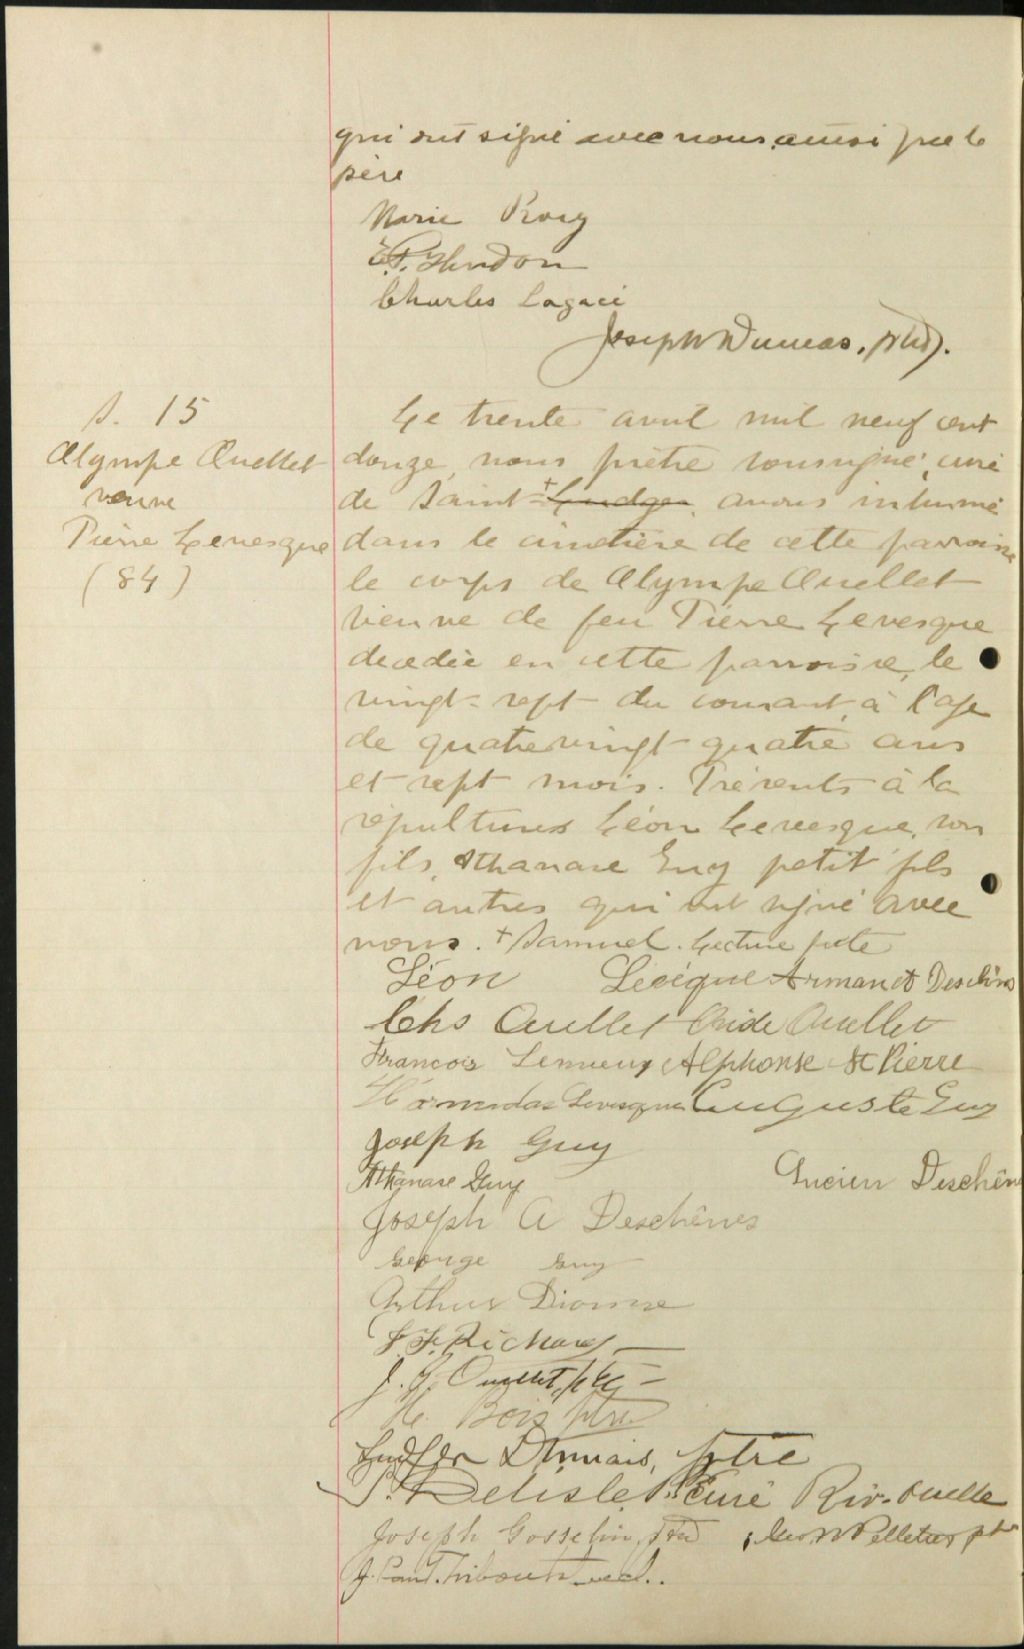 qui ont signé avec nous ainsi que le
père
Marie Roy
Charles Lagacé
Joseph Dumas, ptre.
S. 15
Olympe Ouellet
veuve
Pierre Levesque
(84)
Le trente avril mil neuf cent
douze, nous prêtre soussigné, curé
de Saint-+Ludger avons inhumé
dans le cimetière de cette paroisse
le corps de Olympe Ouellet
veuve de feu Pierre Levesque
decedée en cette paroisse, le
vingt-sept du courant, à l'age
de quatrevingt quatre ans
et sept mois. Présents à la
sépulture Léon Levesque, son
fils, Athanase Guy petit fils
et autres qui ont signé avec
nous. + Samuel. Lecture faite
Léon Levêque Armand Deschênes
Chs Ouellet Ovide Ouellet
Francois Lemieux Alphonse St Pierre
Hormidas Levesque Auguste Guy
Joseph Guy
Athanase Guy Lucien Deschên
Joseph A Deschênes
George Guy
Arthur Dionne
Richard
J. G. Ouellet, ptre
H. Bois ptre
Ludger Dumais, ptre
Delisle Ptre Curé Riv-Ouelle
Joseph Gosselin, ptre Pelletier ptr